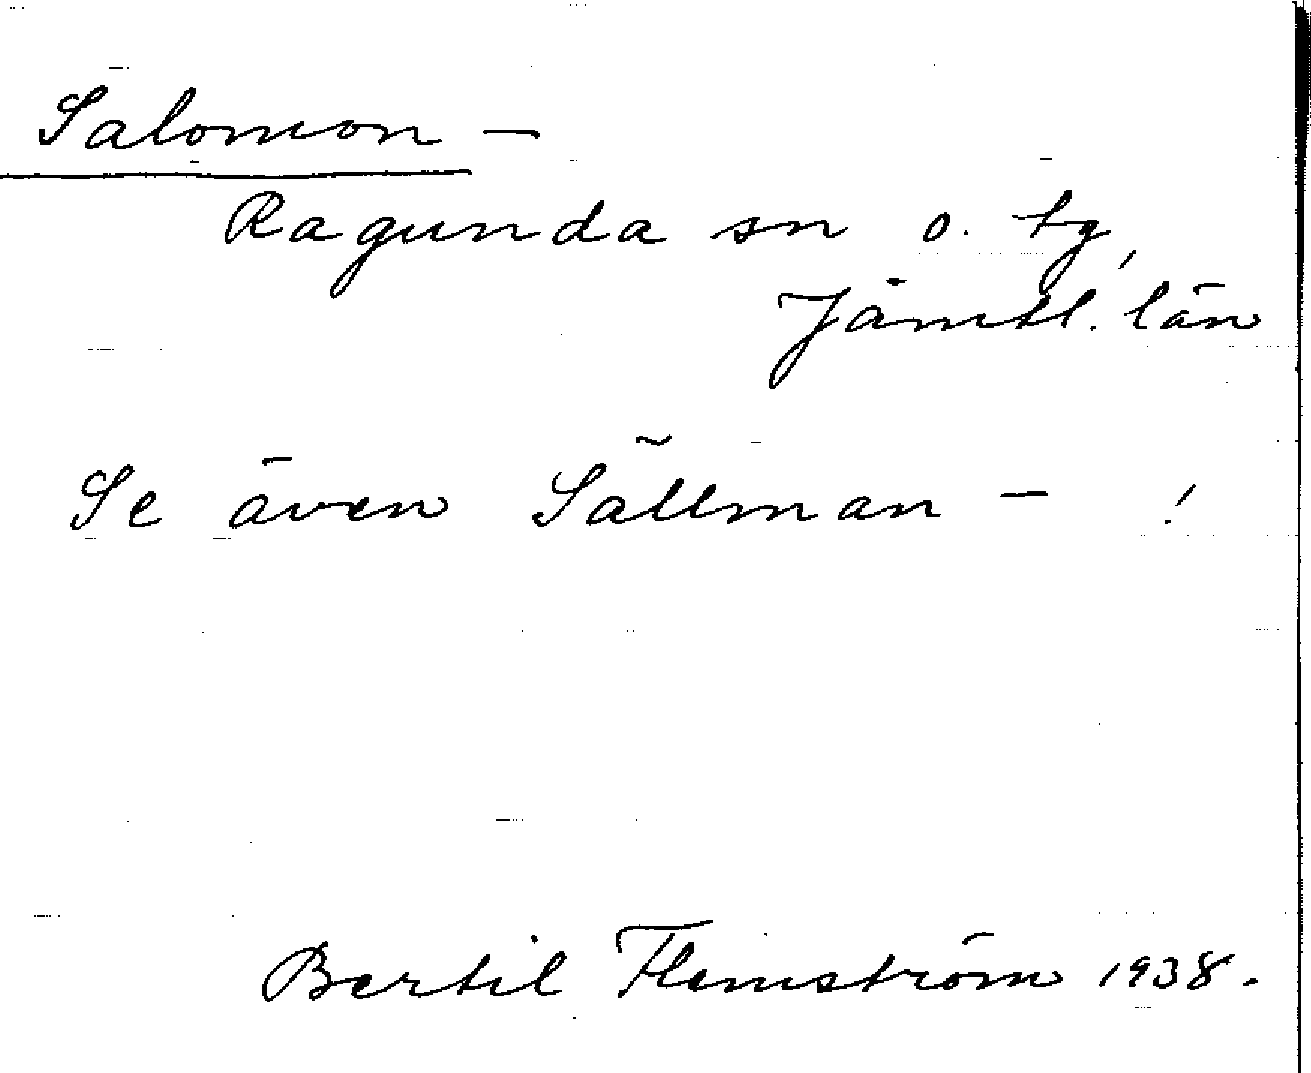 Salomon –
Ragunda sn o. tg,
Jämtl. län
Se även Sällman – !
Bertil Flemström 1938.